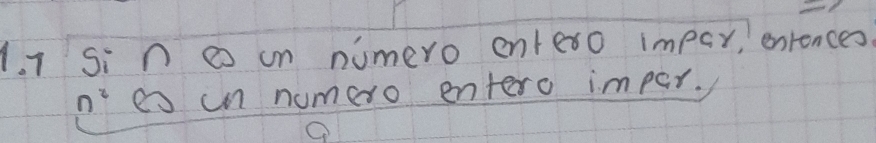 1.1 Si n es un número entero impar, entonces
n² es un numero entero impar.